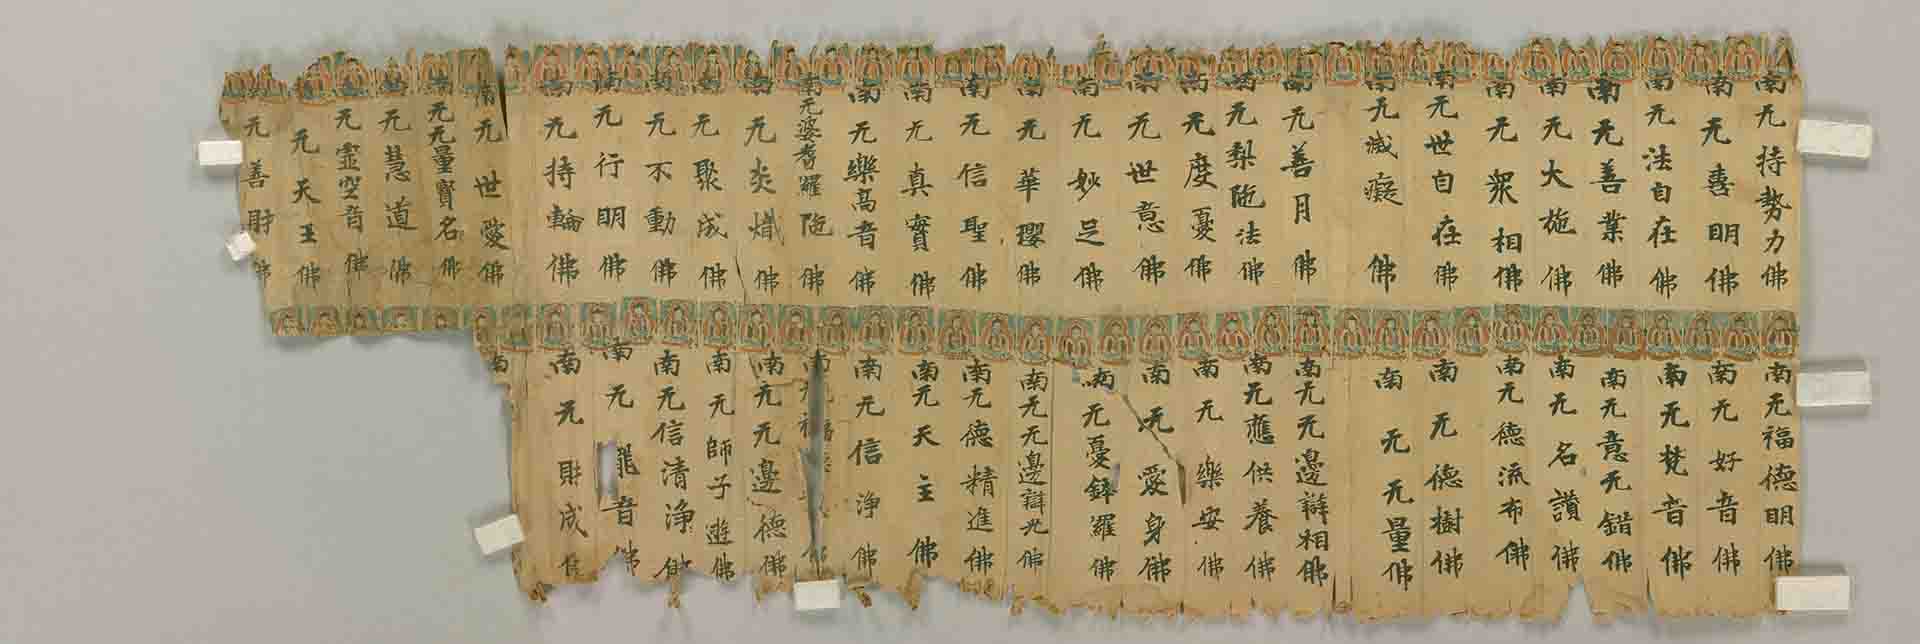 南无持勢力佛
南无憙明佛
南无法自在佛
南无善業佛
南无大施佛
南无衆相佛
南无世自在佛
南无滅癡佛
南无善月佛
南无梨陁法佛
南无度憂佛
南无世意佛
南无妙足佛
南无華瓔佛
南无信聖佛
南无真實佛
南无樂高音佛
南无婆耆羅陁佛
南无炎熾佛
南无聚成佛
南无不動佛
南无行明佛
南无持輪佛
南无世愛佛
南无无量寳名佛
无慧道佛
无虛空音佛
无天王佛
无善財佛
南无福德明佛
南无好音佛
南无梵音佛
南无意无錯佛
南无名讃佛
南无德流布佛
南无德樹佛
南无无量佛
南无无邊辯相佛
南无應供養佛
南无樂安佛
南无愛身佛
南无憂鉢羅佛
南无无邊辯光佛
南无德精進佛
南无天主佛
南无信淨佛
南无福
南无无邊德佛
南无師子遊佛
南无信清淨佛
南无龍音佛
南无財成佛
南